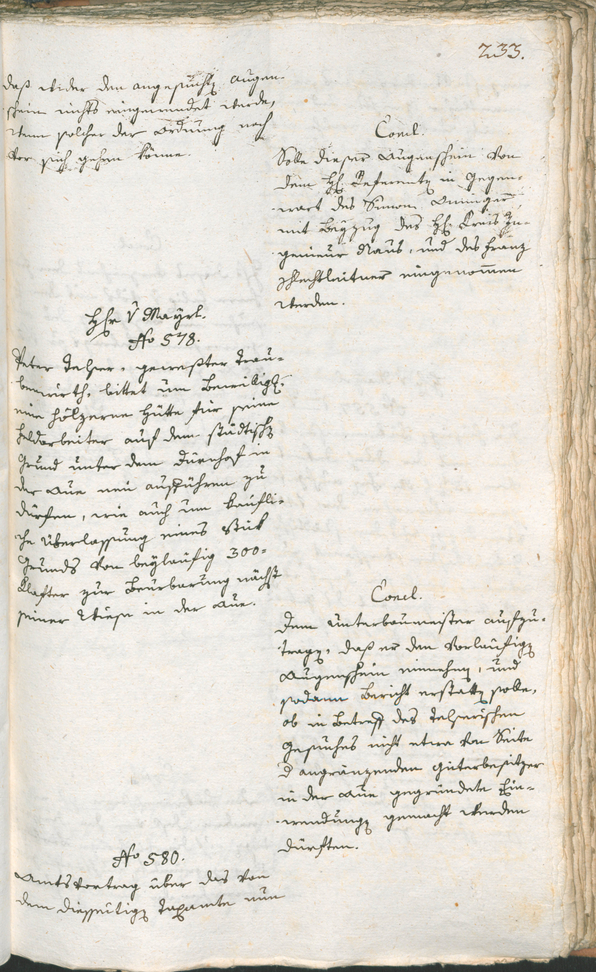 233.
daß wider den angesuchten Augen-
schein nichts eingewendet werde,
wenn solcher der Ordnung nach
vor sich gehen könne.
Concl.
Solle dieser Augenschein von
dem H. Referenten in Gegen-
wart des Simon
mit Beyzug des H. Kreis In-
genieur Naus, und des Franz
Schlechtleitner eingenommen
werden.
H. v Mayrl.
No 578.
Peter Telser, gewester Trau-
benwirth, bittet um Bewilligg.
eine hölzerne Hütte für seine
Feldarbeiter auf dem städtischen
Grund unter dem Dürnhof in
der Aue neu aufführen zu
dürfen, wie auch um käufli-
che Überlassung eines Stük
Grunds von beyläufig 300-
Klafter zur Beurbarung nächst
seiner Wiese in der Aue.
Concl.
Dem Unterbaumeister aufzu-
tragen, daß er den vorläufigen
Augenschein einnehmen, und
sodann Bericht erstatten solle,
ob in Betreff des Telserischen
Gesuches nicht etwa von Seite
d angränzenden Güterbesitzer
in der Aue gegründete Ein-
wendungen gemacht werden
dürften.
No 580.
Amtsvortrag über das von
dem diesseitigen Taxamte nun